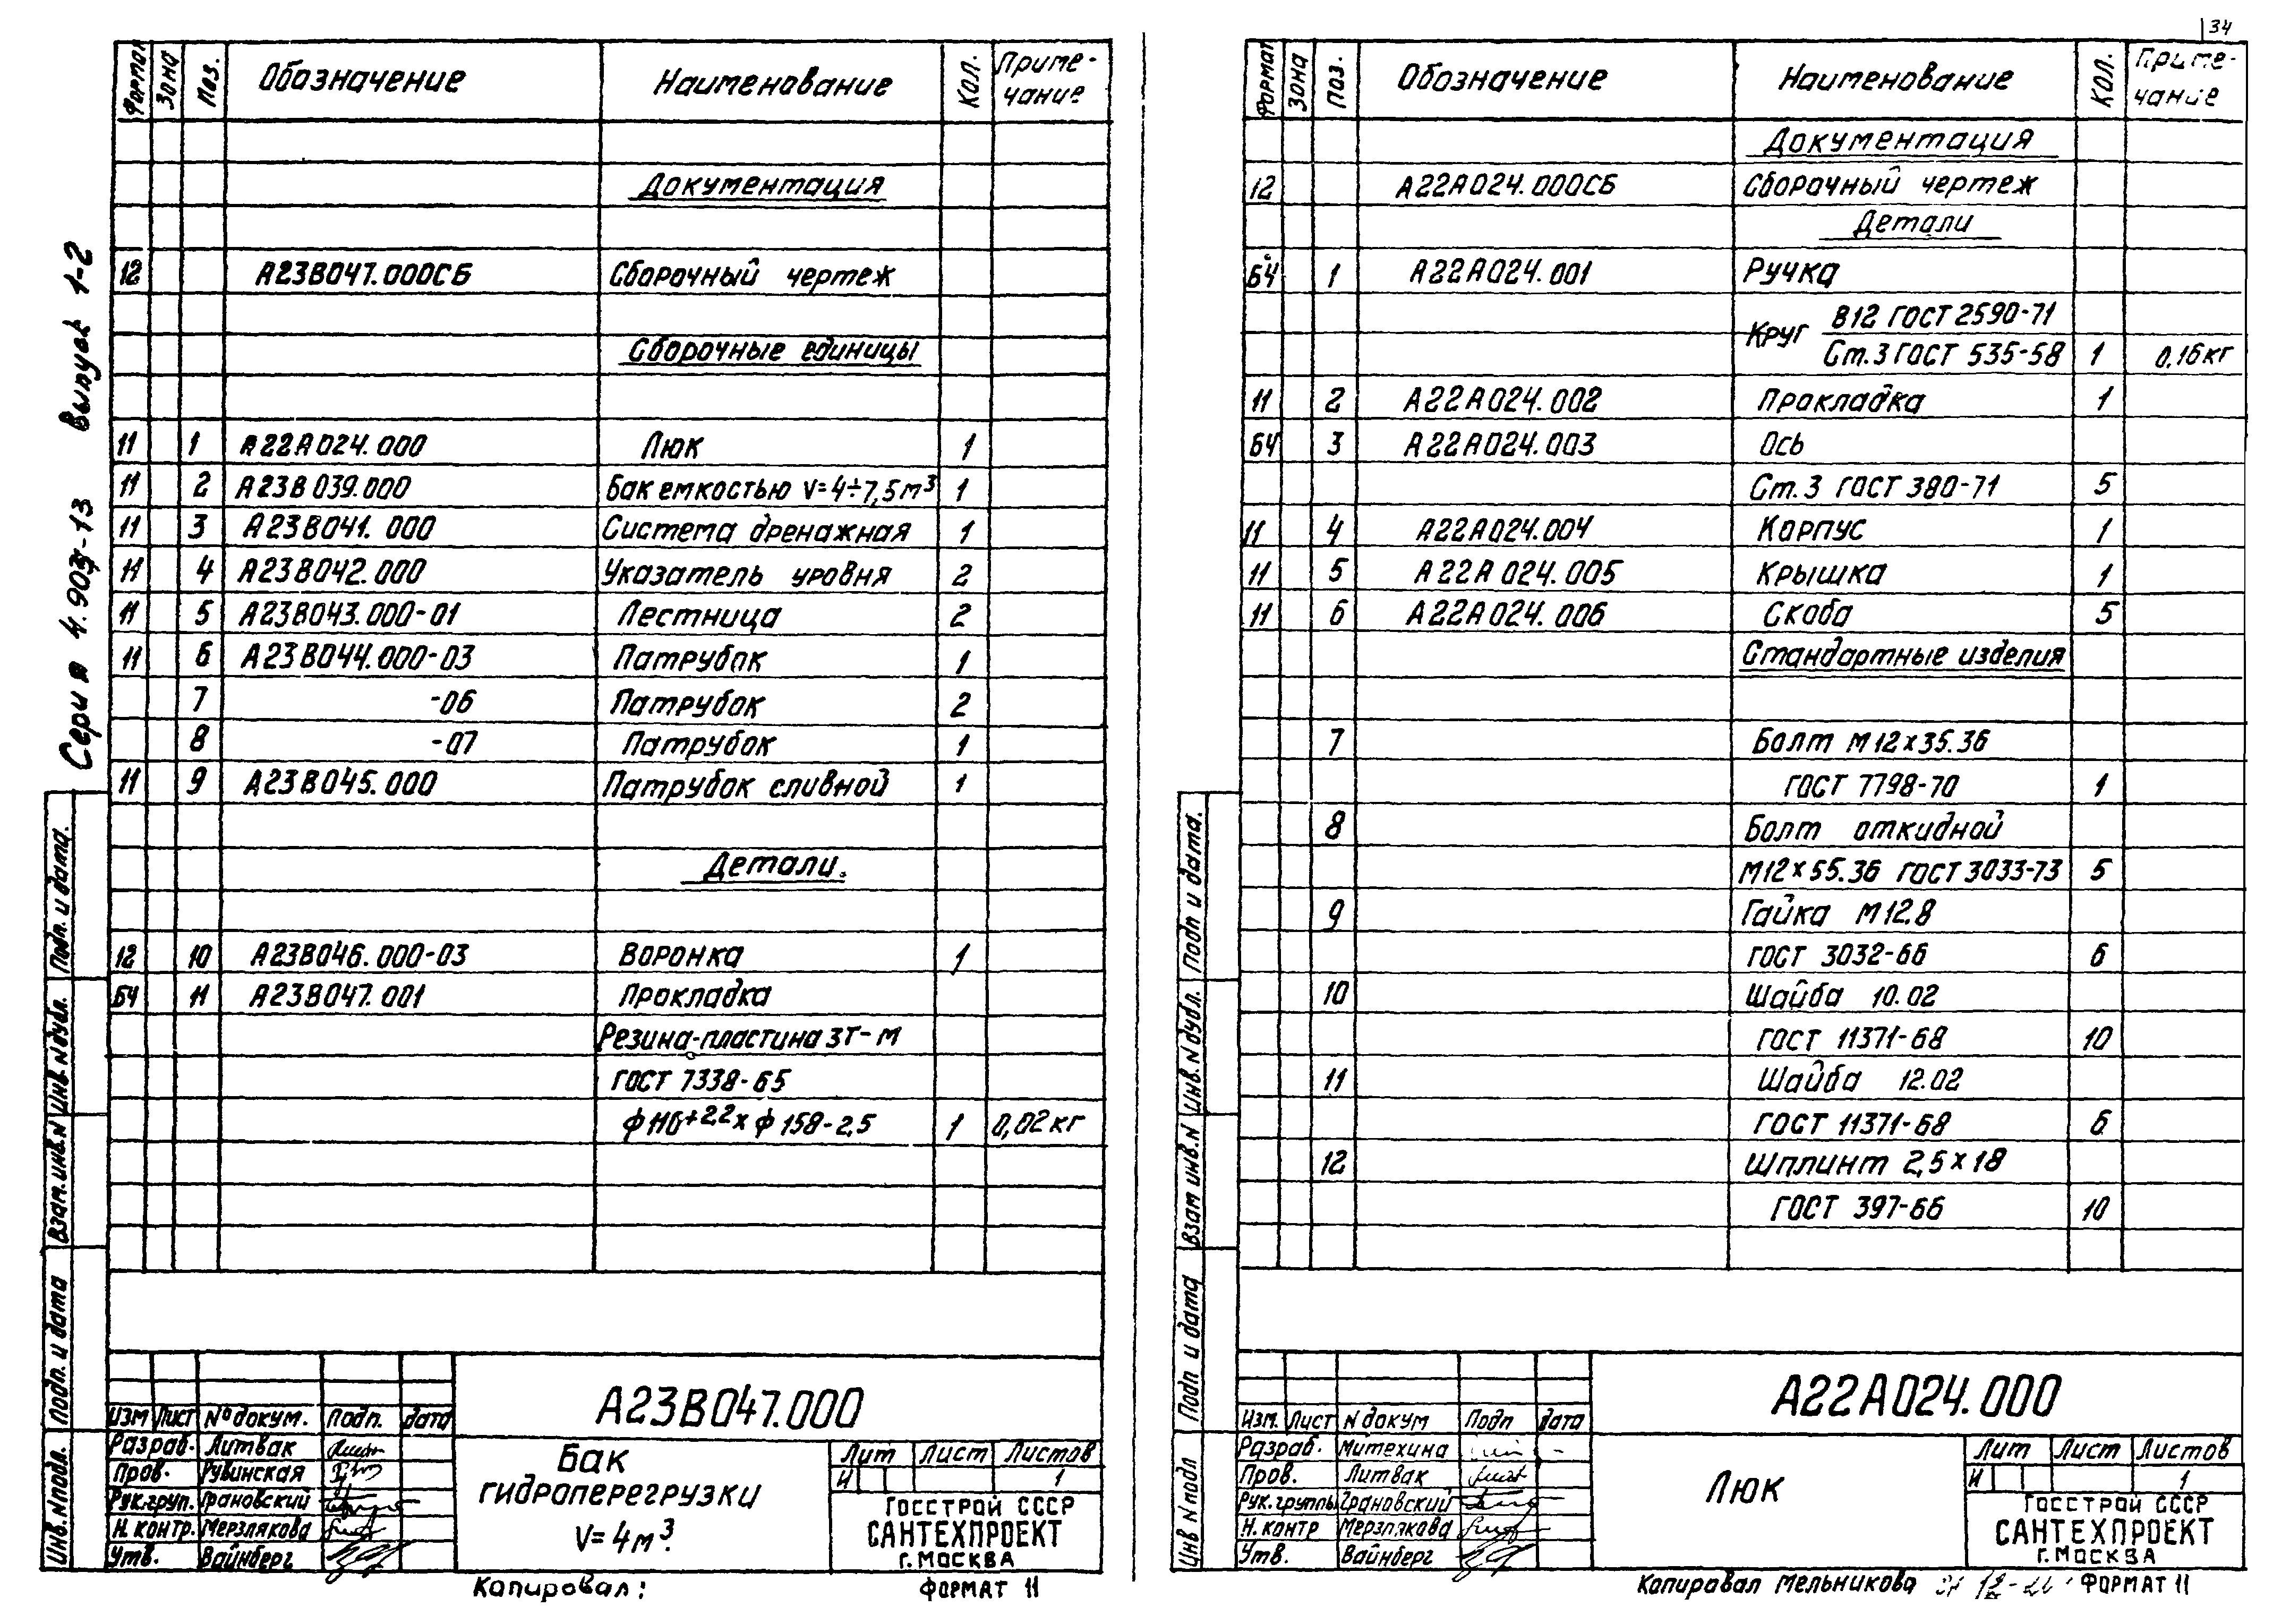 34
Серия 4.903-13 Выпуск 1-2
Формат Зона Поз. Обозначение Наименование Кол. Примечание
Документация
12 А23В047.000СБ Сборочный чертеж
Сборочные единицы
11 1 А22А024.000 Люк 1
11 2 А23В039.000 Бак емкостью V=4÷7,5м³ 1
11 3 А23В041.000 Система дренажная 1
11 4 А23В042.000 Указатель уровня 2
11 5 А23В043.000-01 Лестница 2
11 6 А23В044.000-03 Патрубок 1
7 -06 Патрубок 2
8 -07 Патрубок 1
11 9 А23В045.000 Патрубок сливной 1
Детали.
12 10 А23В046.000-03 Воронка 1
БЧ 11 А23В047.001 Прокладка
Резина-пластина 3Т-М
ГОСТ 7338-65
ф116+2.2х ф158-2,5 1 0,02кг
Инв. N подл. Подп. и дата Взам. инв. N Инв. N дубл. Подп. и дата.
А23В047.000
Изм Лист №докум. Подп. дата
Разраб. Литвак
Пров. Рувинская
Рук.груп. Грановский
Н. контр. Мерзлякова
Утв. Вайнберг
Бак
гидроперегрузки
V=4м³.
Лит Лист Листов
И 1
ГОССТРОЙ СССР
САНТЕХПРОЕКТ
г.МОСКВА
Копировал: ФОРМАТ 11
Формат Зона Поз. Обозначение Наименование Кол. Примечание
Документация
12 А22А024.000СБ Сборочный чертеж
Детали
БЧ 1 А22А024.001 Ручка
Круг В12 ГОСТ 2590-71
Ст.3 ГОСТ 535-58 1 0,16кг
11 2 А22А024.002 Прокладка 1
БЧ 3 А22А024.003 Ось
Ст.3 ГОСТ 380-71 5
11 4 А22А024.004 Корпус 1
11 5 А22А024.005 Крышка 1
11 6 А22А024.006 Скоба 5
Стандартные изделия
7 Болт М12х35.36
ГОСТ 7798-70 1
8 Болт откидной
М12х55.36 ГОСТ 3033-73 5
9 Гайка М12.8
ГОСТ 3032-66 6
10 Шайба 10.02
ГОСТ 11371-68 10
11 Шайба 12.02
ГОСТ 11371-68 6
12 Шплинт 2,5х18
ГОСТ 397-66 10
Инв N подл Подп и дата Взам инв. N Инв. N дубл. Подп и дата.
А22А024.000
Изм. Лист N докум Подп дата
Разраб. Митехина
Пров. Литвак
Рук.группы Грановский
Н. контр Мерзлякова
Утв. Вайнберг
Люк
Лит Лист Листов
И 1
ГОССТРОЙ СССР
САНТЕХПРОЕКТ
г.МОСКВА
Копировал Мельникова ФОРМАТ 11